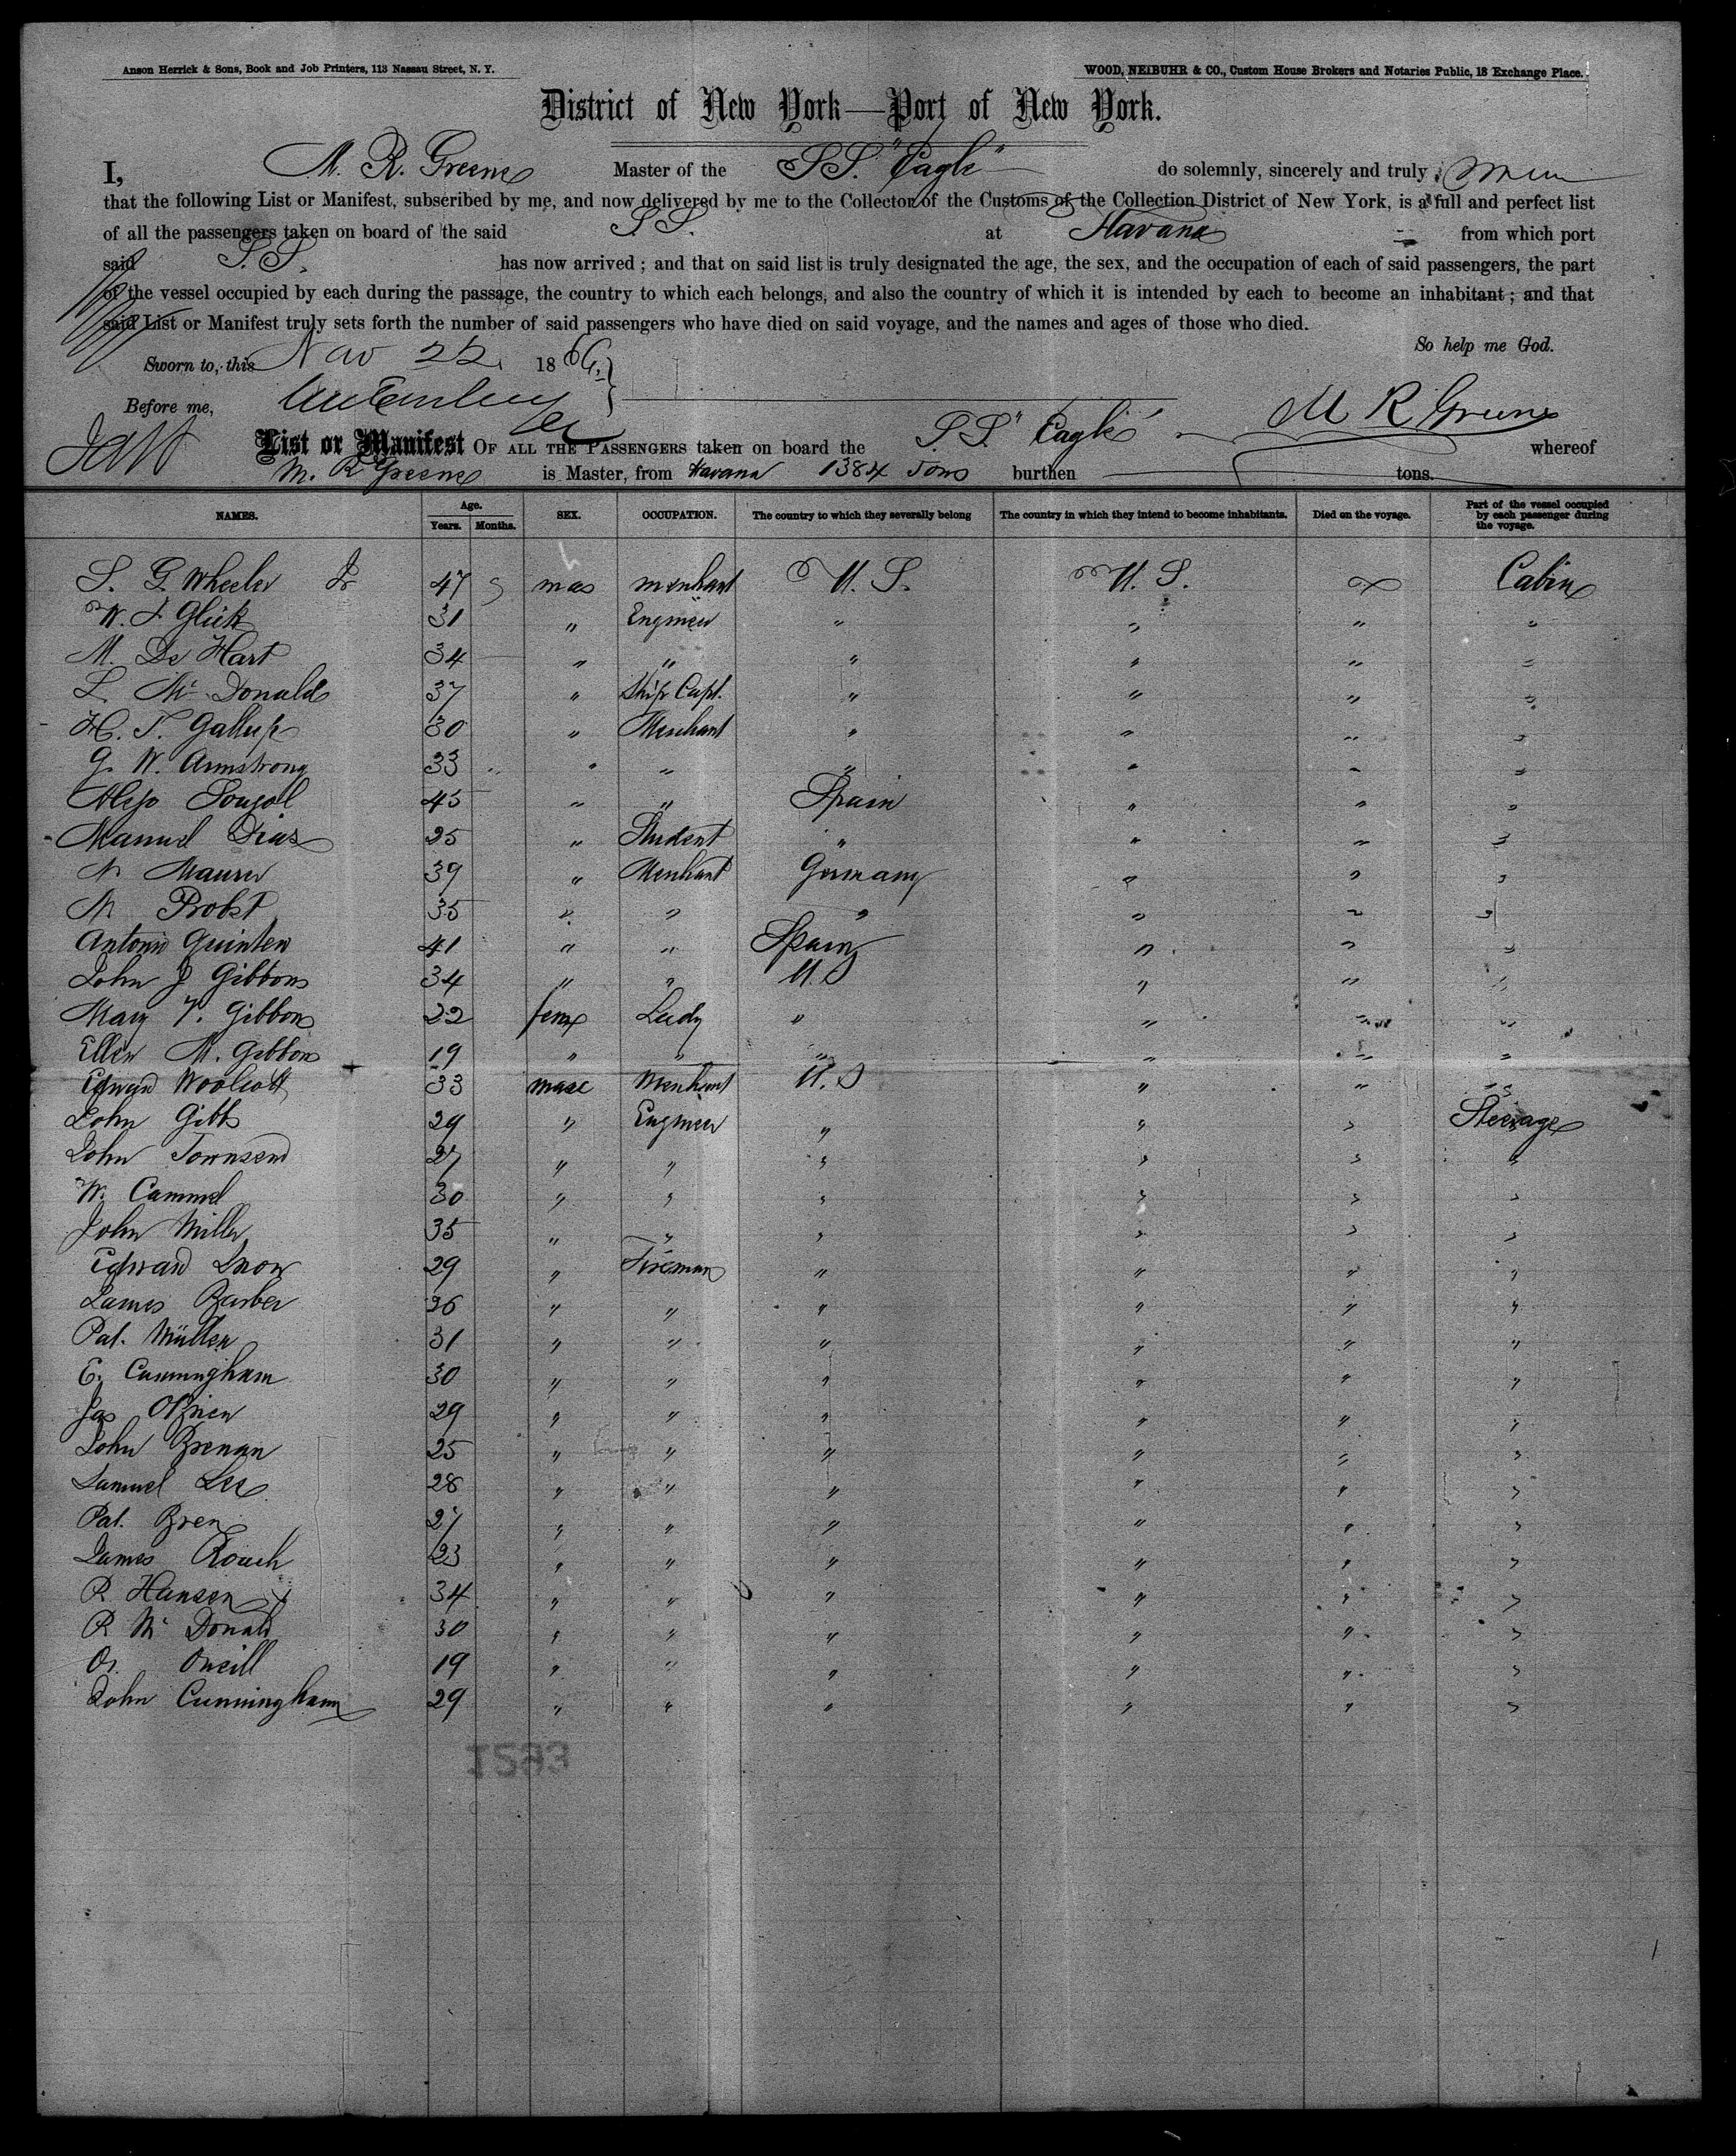 Anson Herrick & Sons, Book and Job Printers, 113 Nassau Street, N. Y.
WOOD, NEIBUHR & CO., Custom House Brokers and Notaries Public, 18 Exchange Place.
District of New York—Port of New York.
I, M. R. Greene Master of the SS. "Eagle" do solemnly, sincerely and truly
that the following List or Manifest, subscribed by me, and now delivered by me to the Collector of the Customs of the Collection District of New York, is a full and perfect list
of all the passengers taken on board of the said S.S. at Havana from which port
said S.S. has now arrived ; and that on said list is truly designated the age, the sex, and the occupation of each of said passengers, the part
of the vessel occupied by each during the passage, the country to which each belongs, and also the country of which it is intended by each to become an inhabitant ; and that
said List or Manifest truly sets forth the number of said passengers who have died on said voyage, and the names and ages of those who died.
So help me God.
Sworn to, this Nov 22 186
Before me, M R Greene
List or Manifest OF ALL THE PASSENGERS taken on board the S.S. "Eagle" whereof
M. R Greene is Master, from Havana 1384 Tons burthen tons.
NAMES. Age. Years. Months. SEX. OCCUPATION. The country to which they severally belong The country in which they intend to become inhabitants. Died on the voyage. Part of the vessel occupied by each passenger during the voyage.
S. G. Wheeler Jr 47 mas merchant U. S. U. S. Cabin
W. F Glick 31 " Engineer " " " "
M. De Hart 34 " " " " " "
L. Mc Donald 37 " Ship Capt. " " " "
H. T. Gallup 30 " Merchant " " " "
G. W. Armstrong 33 " " " " " "
Alejo 45 " " Spain " " "
Manuel Dias 25 " Student " " " "
N Maurer 39 " Merchant Germany " " "
M Probst 35 " " " " " "
Antonio 41 " " Spain " " "
John J Gibbons 34 " " U.S " " "
Mary F. Gibbons 22 fem Lady " " " "
Ellen M. Gibbons 19 " " " " " "
Edward Woolcott 33 masc Merchant U.S " " "
John Gibbs 29 " Engineer " " " Steerage
John Townsend 27 " " " " " "
W. Cammel 30 " " " " " "
John Miller 35 " " " " " "
Edward Snow 29 " Fireman " " " "
James Barber 26 " " " " " "
Pat. Mullen 31 " " " " " "
E. Cunningham 30 " " " " " "
Jas OBrien 29 " " " " " "
John Brenan 25 " " " " " "
Samuel Lee 28 " " " " " "
Pat. Bren 27 " " " " " "
James Roach 23 " " " " " "
P. Hansen 34 " " " " " "
P. Mc Donald 30 " " " " " "
Oneill 19 " " " " " "
John Cunningham 29 " " " " " "